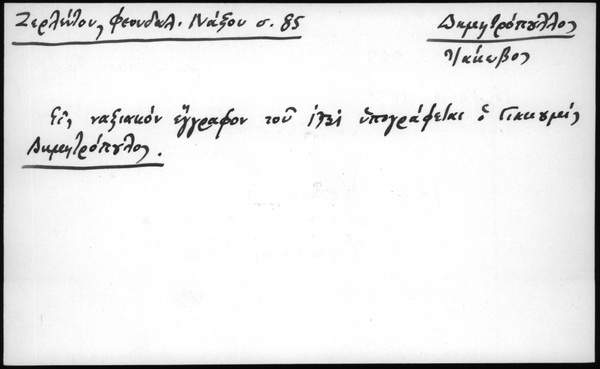 Ζερλέντου, Φεουδαλ. Νάξου σ. 85
Δημητρόπουλλος
Ἰάκωβος
Εἰς ναξιακόν ἔγγραφον τοῦ 1721 ὑπογράφεται ὁ Γιακουμής
Δημητρόπουλος.